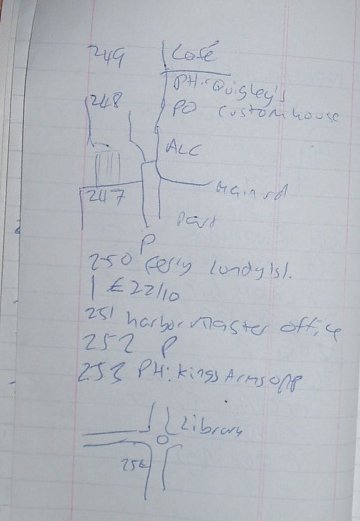 249 Café
PH: Quigley's
248
PO Customhouse
ALC
247
Main rd
P
250 ferry Lundy Isl.
1 £22/10
251 harbormaster office
252 P
253 PH: Kings Arms opp
Library
254